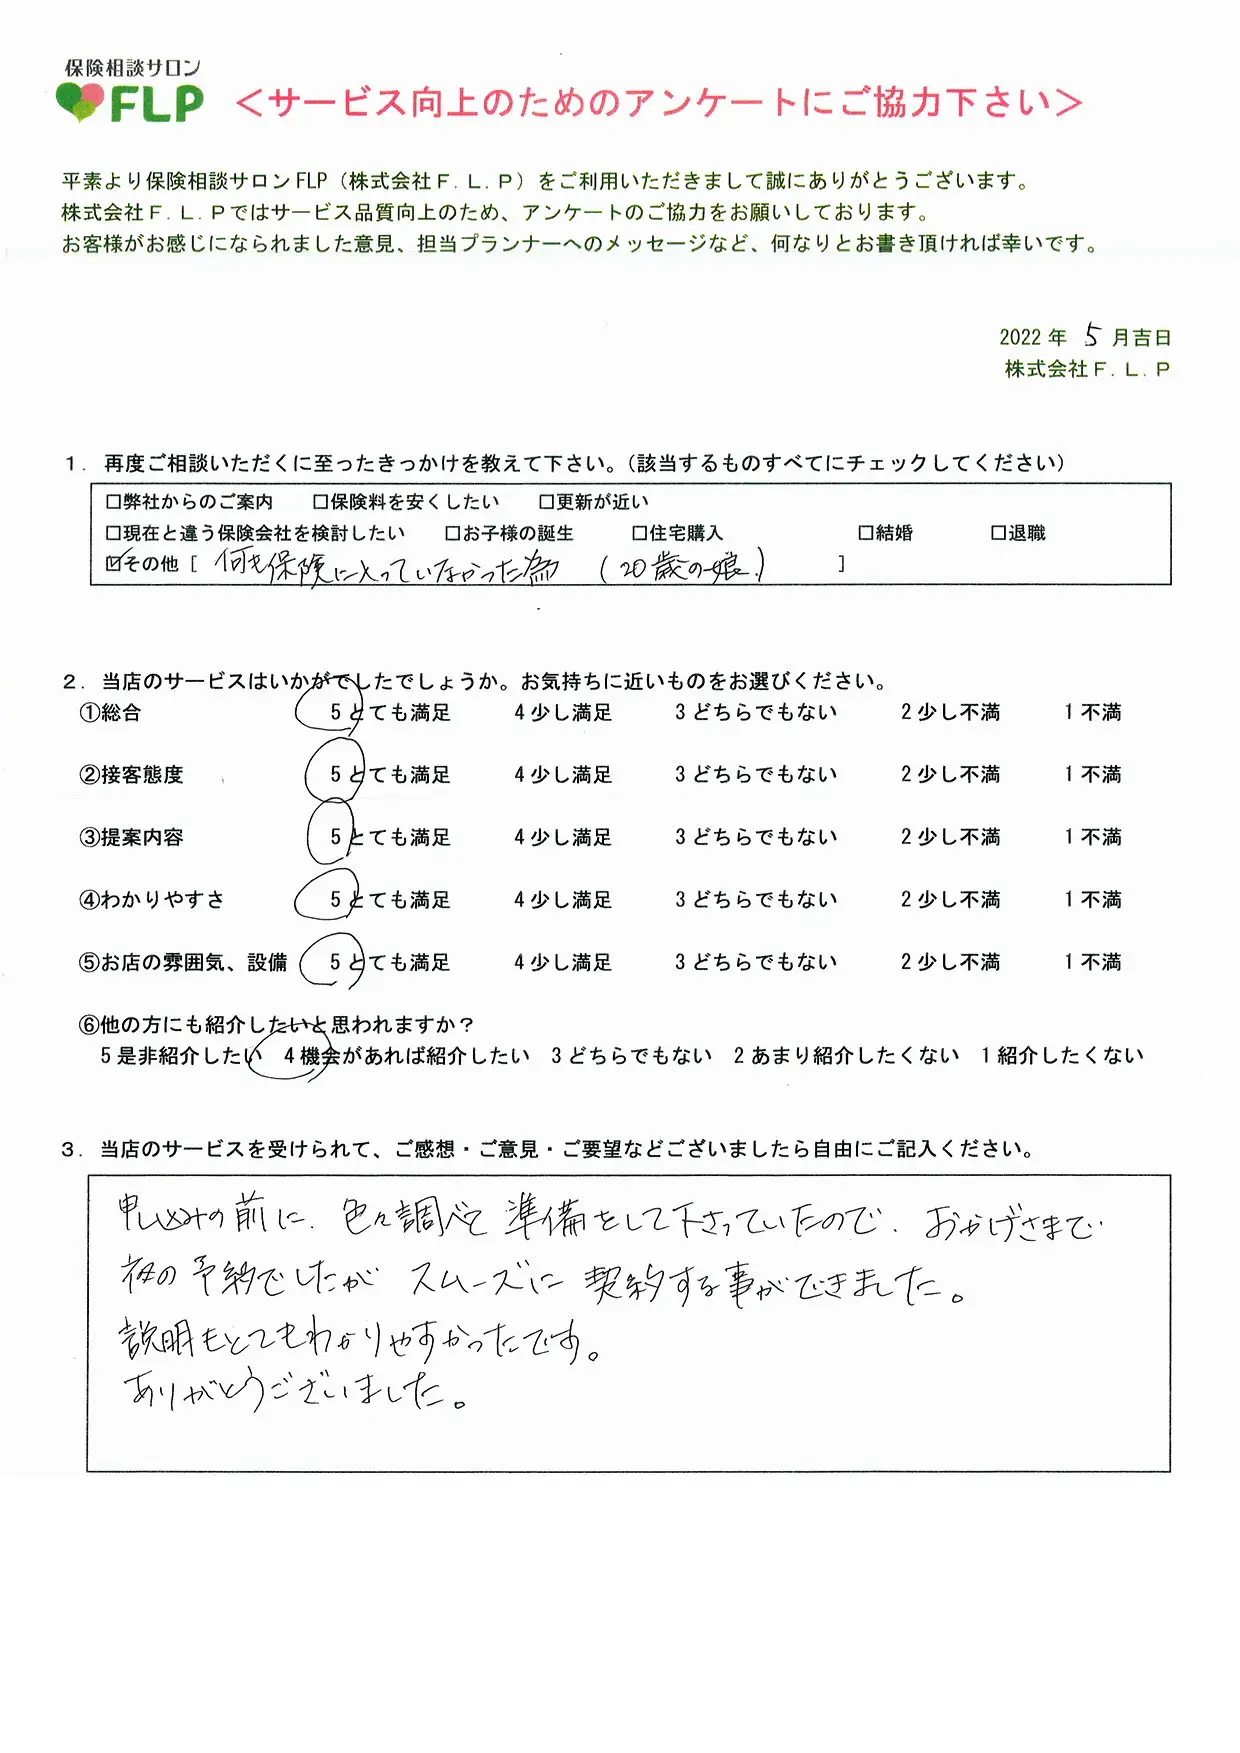 保険相談サロン
FLP
＜サービス向上のためのアンケートにご協力下さい＞
平素より保険相談サロンFLP（株式会社Ｆ．Ｌ．Ｐ）をご利用いただきまして誠にありがとうございます。
株式会社Ｆ．Ｌ．Ｐではサービス品質向上のため、アンケートのご協力をお願いしております。
お客様がお感じになられました意見、担当プランナーへのメッセージなど、何なりとお書き頂ければ幸いです。
2022年 5 月吉日
株式会社Ｆ．Ｌ．Ｐ
１．再度ご相談いただくに至ったきっかけを教えて下さい。（該当するものすべてにチェックしてください）
□弊社からのご案内 □保険料を安くしたい □更新が近い
□現在と違う保険会社を検討したい □お子様の誕生 □住宅購入 □結婚 □退職
☑その他［ 何も保険に入っていなかった為 （20歳の娘.） ］
２．当店のサービスはいかがでしたでしょうか。お気持ちに近いものをお選びください。
①総合 5とても満足 4少し満足 3どちらでもない 2少し不満 1不満
②接客態度 5とても満足 4少し満足 3どちらでもない 2少し不満 1不満
③提案内容 5とても満足 4少し満足 3どちらでもない 2少し不満 1不満
④わかりやすさ 5とても満足 4少し満足 3どちらでもない 2少し不満 1不満
⑤お店の雰囲気、設備 5とても満足 4少し満足 3どちらでもない 2少し不満 1不満
⑥他の方にも紹介したいと思われますか？
5是非紹介したい 4機会があれば紹介したい 3どちらでもない 2あまり紹介したくない 1紹介したくない
３．当店のサービスを受けられて、ご感想・ご意見・ご要望などございましたら自由にご記入ください。
申し込みの前に、色々調べて準備をして下さっていたので、おかげさまで
夜の予約でしたが スムーズに契約する事ができました。
説明もとてもわかりやすかったです。
ありがとうございました。